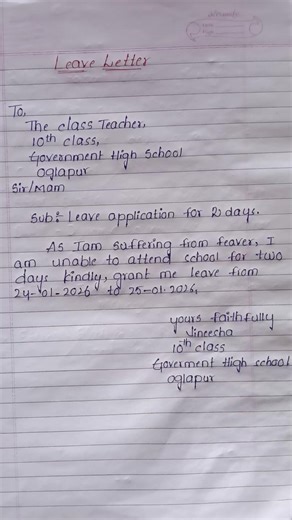 Leave Letter
To,
The class Teacher,
10th class,
Government High School
Oglapur
Sir/Mam
Sub:- Leave application for 2 days.
As I am suffering from feaver, I
am unable to attend school for two
days kindly, grant me leave from
24-01-2026 to 25-01-2026,
yours faithfully
Vineesha
10th class
Goverment High school
Oglapur